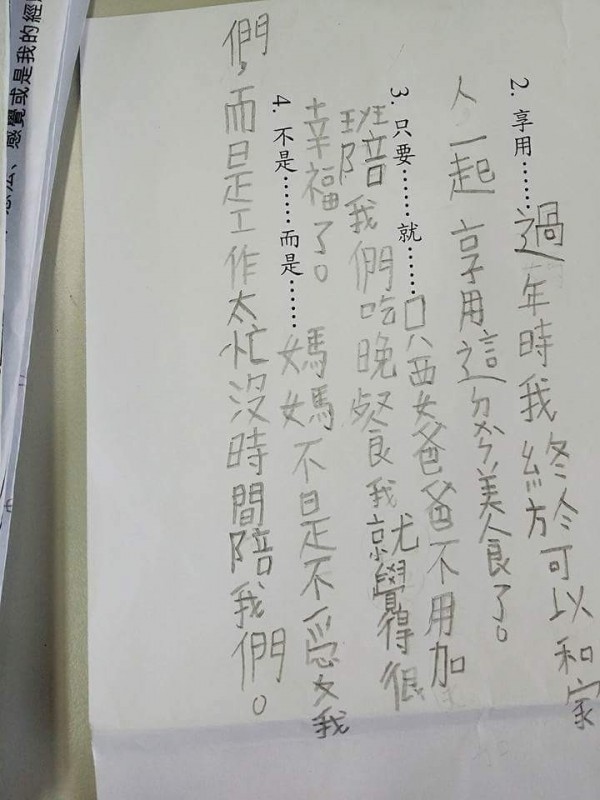 2. 享用……過年時我終於可以和家
人一起享用這份美食了。
3. 只要……就……只要爸爸不用加
班陪我們吃晚餐我就覺得很
幸福了。
4. 不是……而是……媽媽不是不愛我
們,而是工作太忙沒時間陪我們。
法、感覺或是我的經